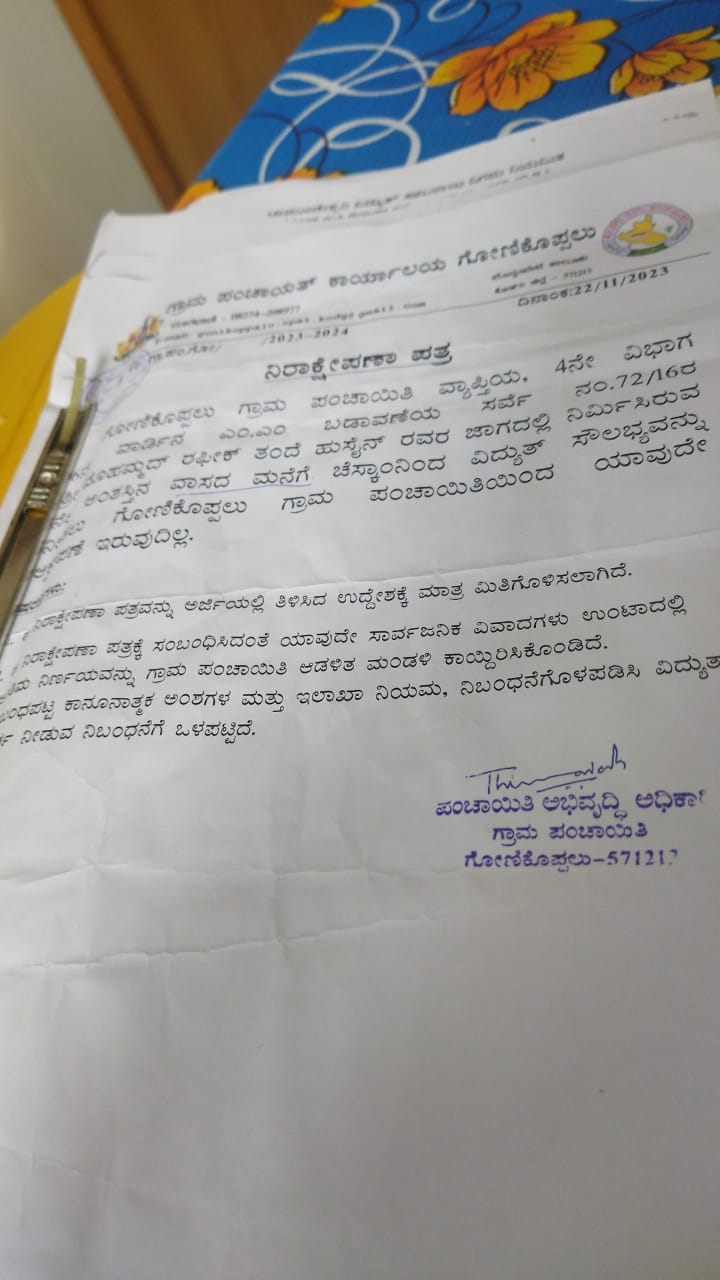 ಗ್ರಾಮ ಪಂಚಾಯತ್ ಕಾರ್ಯಾಲಯ ಗೋಣಿಕೊಪ್ಪಲು
ದಿನಾಂಕ:22/11/2023
/2023-2024
ನಿರಾಕ್ಷೇಪಣಾ ಪತ್ರ
ಗೋಣಿಕೊಪ್ಪಲು ಗ್ರಾಮ ಪಂಚಾಯಿತಿ ವ್ಯಾಪ್ತಿಯ, 4ನೇ ವಿಭಾಗ
ವಾರ್ಡಿನ ಎಂ.ಎಂ ಬಡಾವಣೆಯ ಸರ್ವೆ ನಂ.72/16ರ
ಮೊಹಮ್ಮದ್ ರಫೀಕ್ ತಂದೆ ಹುಸೈನ್ ರವರ ಜಾಗದಲ್ಲಿ ನಿರ್ಮಿಸಿರುವ
ಅಂತಸ್ತಿನ ವಾಸದ ಮನೆಗೆ ಚೆಸ್ಕಾಂನಿಂದ ವಿದ್ಯುತ್ ಸೌಲಭ್ಯವನ್ನು
ಗೋಣಿಕೊಪ್ಪಲು ಗ್ರಾಮ ಪಂಚಾಯಿತಿಯಿಂದ ಯಾವುದೇ
ಇರುವುದಿಲ್ಲ.
ನಿರಾಕ್ಷೇಪಣಾ ಪತ್ರವನ್ನು ಅರ್ಜಿಯಲ್ಲಿ ತಿಳಿಸಿದ ಉದ್ದೇಶಕ್ಕೆ ಮಾತ್ರ ಮಿತಿಗೊಳಿಸಲಾಗಿದೆ.
ನಿರಾಕ್ಷೇಪಣಾ ಪತ್ರಕ್ಕೆ ಸಂಬಂಧಿಸಿದಂತೆ ಯಾವುದೇ ಸಾರ್ವಜನಿಕ ವಿವಾದಗಳು ಉಂಟಾದಲ್ಲಿ
ನಿರ್ಣಯವನ್ನು ಗ್ರಾಮ ಪಂಚಾಯಿತಿ ಆಡಳಿತ ಮಂಡಳಿ ಕಾಯ್ದಿರಿಸಿಕೊಂಡಿದೆ.
ಕಾನೂನಾತ್ಮಕ ಅಂಶಗಳ ಮತ್ತು ಇಲಾಖಾ ನಿಯಮ, ನಿಬಂಧನೆಗೊಳಪಡಿಸಿ ವಿದ್ಯುತ
ನೀಡುವ ನಿಬಂಧನೆಗೆ ಒಳಪಟ್ಟಿದೆ.
ಪಂಚಾಯಿತಿ ಅಭಿವೃದ್ಧಿ ಅಧಿಕಾ
ಗ್ರಾಮ ಪಂಚಾಯಿತಿ
ಗೋಣಿಕೊಪ್ಪಲು-571213